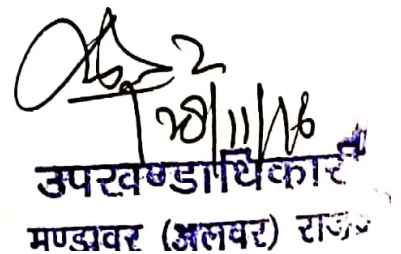 28/11/16
उपखण्डाधिकारी
मण्डावर (अलवर) राज.